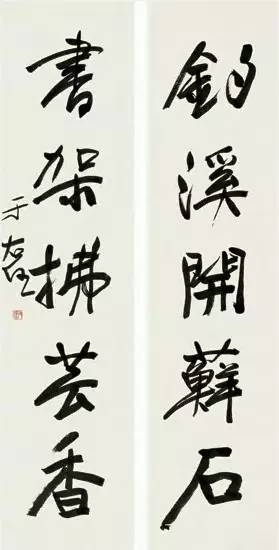 釣溪開蘚石
書架拂芸香
于右任